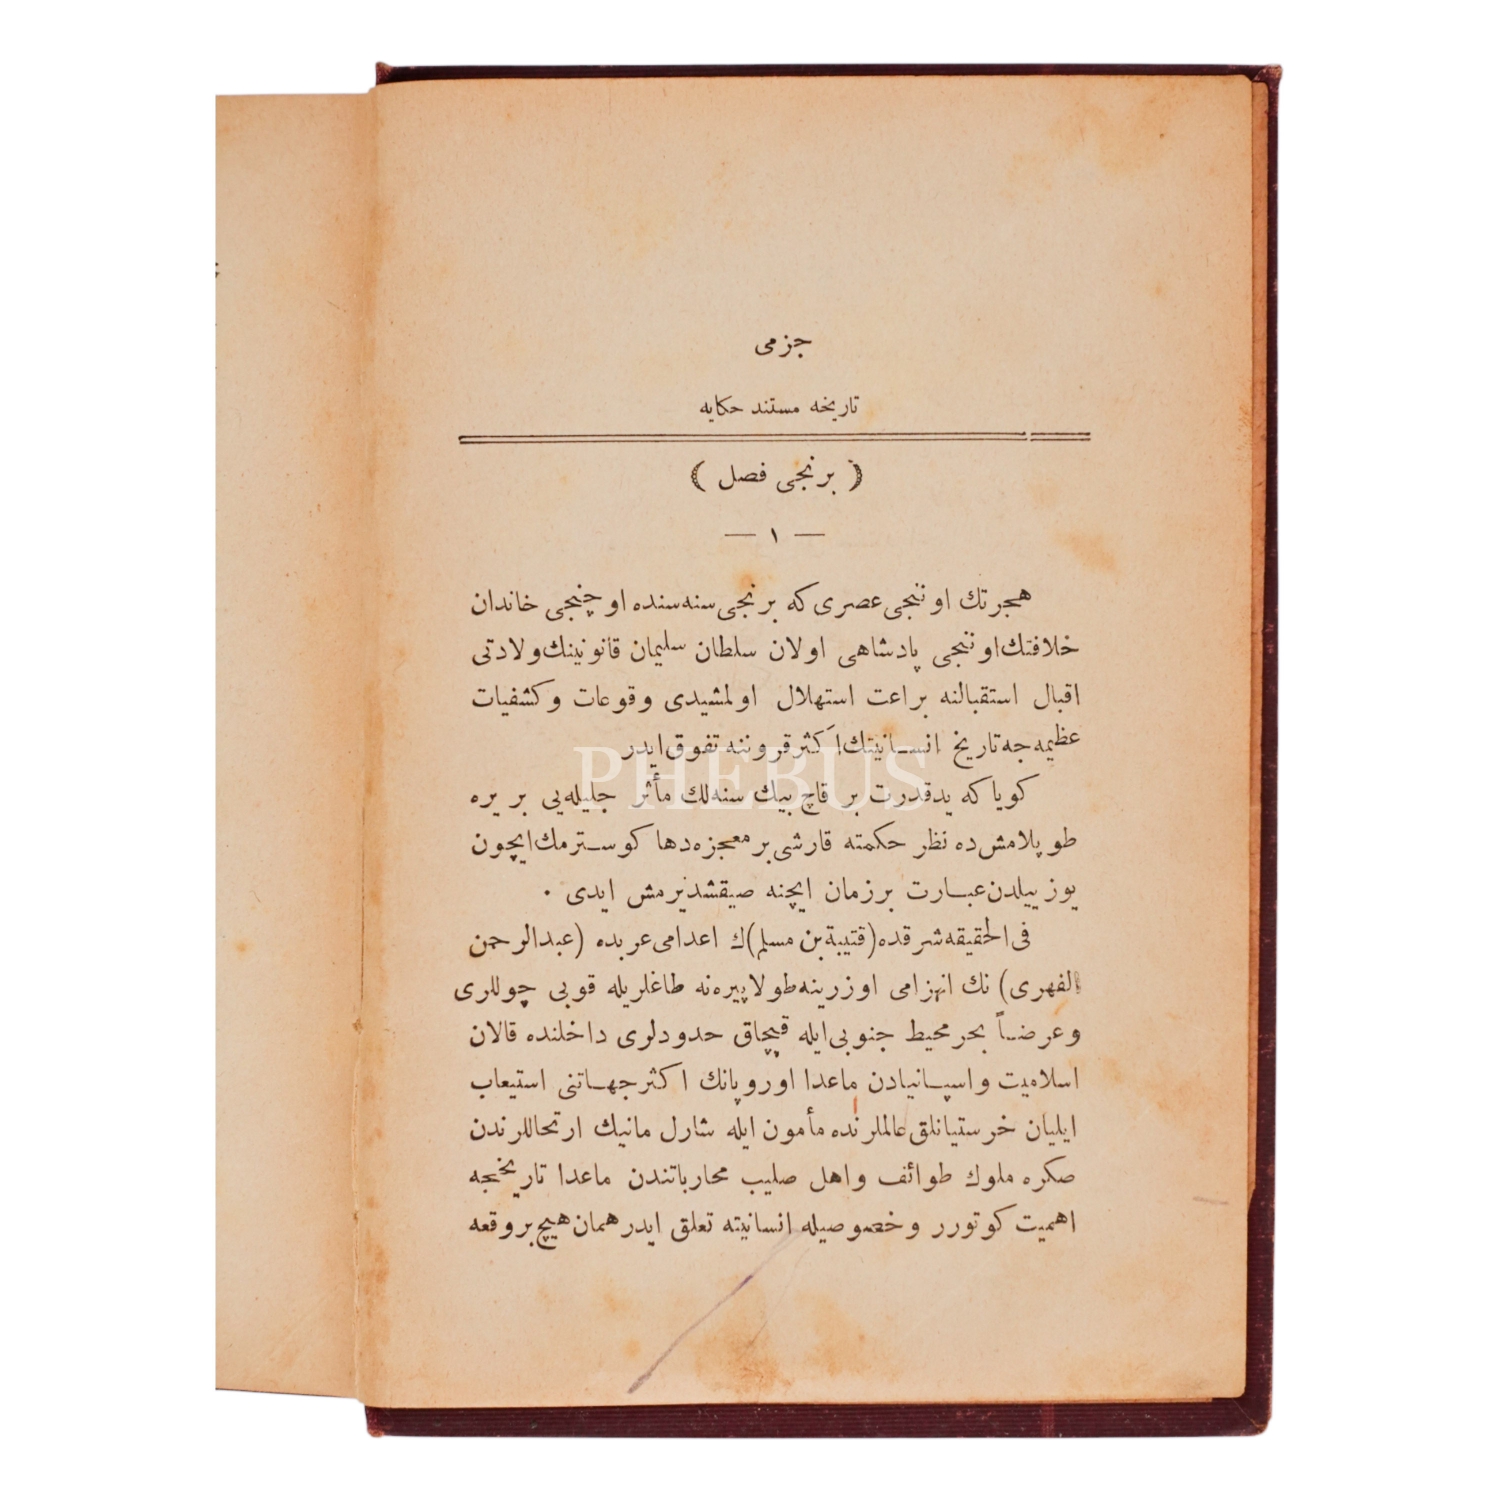 جزمی
تاریخه مستند حکایه
( برنجی فصل )
— ١ —
هجرتك اوننجی عصری که برنجی سنه سنده اوچنجی خاندان
خلافتك اوننجی پادشاهی اولان سلطان سلیمان قانونینك ولادتی
اقبال استقبالنه براعت استهلال اولمشیدی وقوعات وکشفیات
عظیمه جه تاریخ انسانیتك اکثر قروننه تفوق ایدر
کویا که ید قدرت بر قاچ بیك سنه لك مأثر جلیله یی بر یره
طوپلامش ده نظر حکمته قارشی بر معجزه دها کوسترمك ایچون
یوز ییلدن عبارت بر زمان ایچنه صیقشدیرمش ایدی .
فی الحقیقه شرقده (قتیبة بن مسلم) ك اعدامی غربده (عبدالرحمن
الفهری) نك انهزامی اوزرینه طولا پیره نه طاغلریله قوبی چوللری
وعرضاً بحر محیط جنوبی ایله قپچاق حدودلری داخلنده قالان
اسلامیت واسپانیادن ماعدا اوروپانك اکثر جهاتنی استیعاب
ایلیان خرستیانلق عالملرنده مأمون ایله شارل مانیك ارتحاللرندن
صکره ملوك طوائف واهل صلیب محارباتندن ماعدا تاریخجه
اهمیت کوتورر وخصوصیله انسانیته تعلق ایدر همان هیچ بر وقعه
PHEBUS